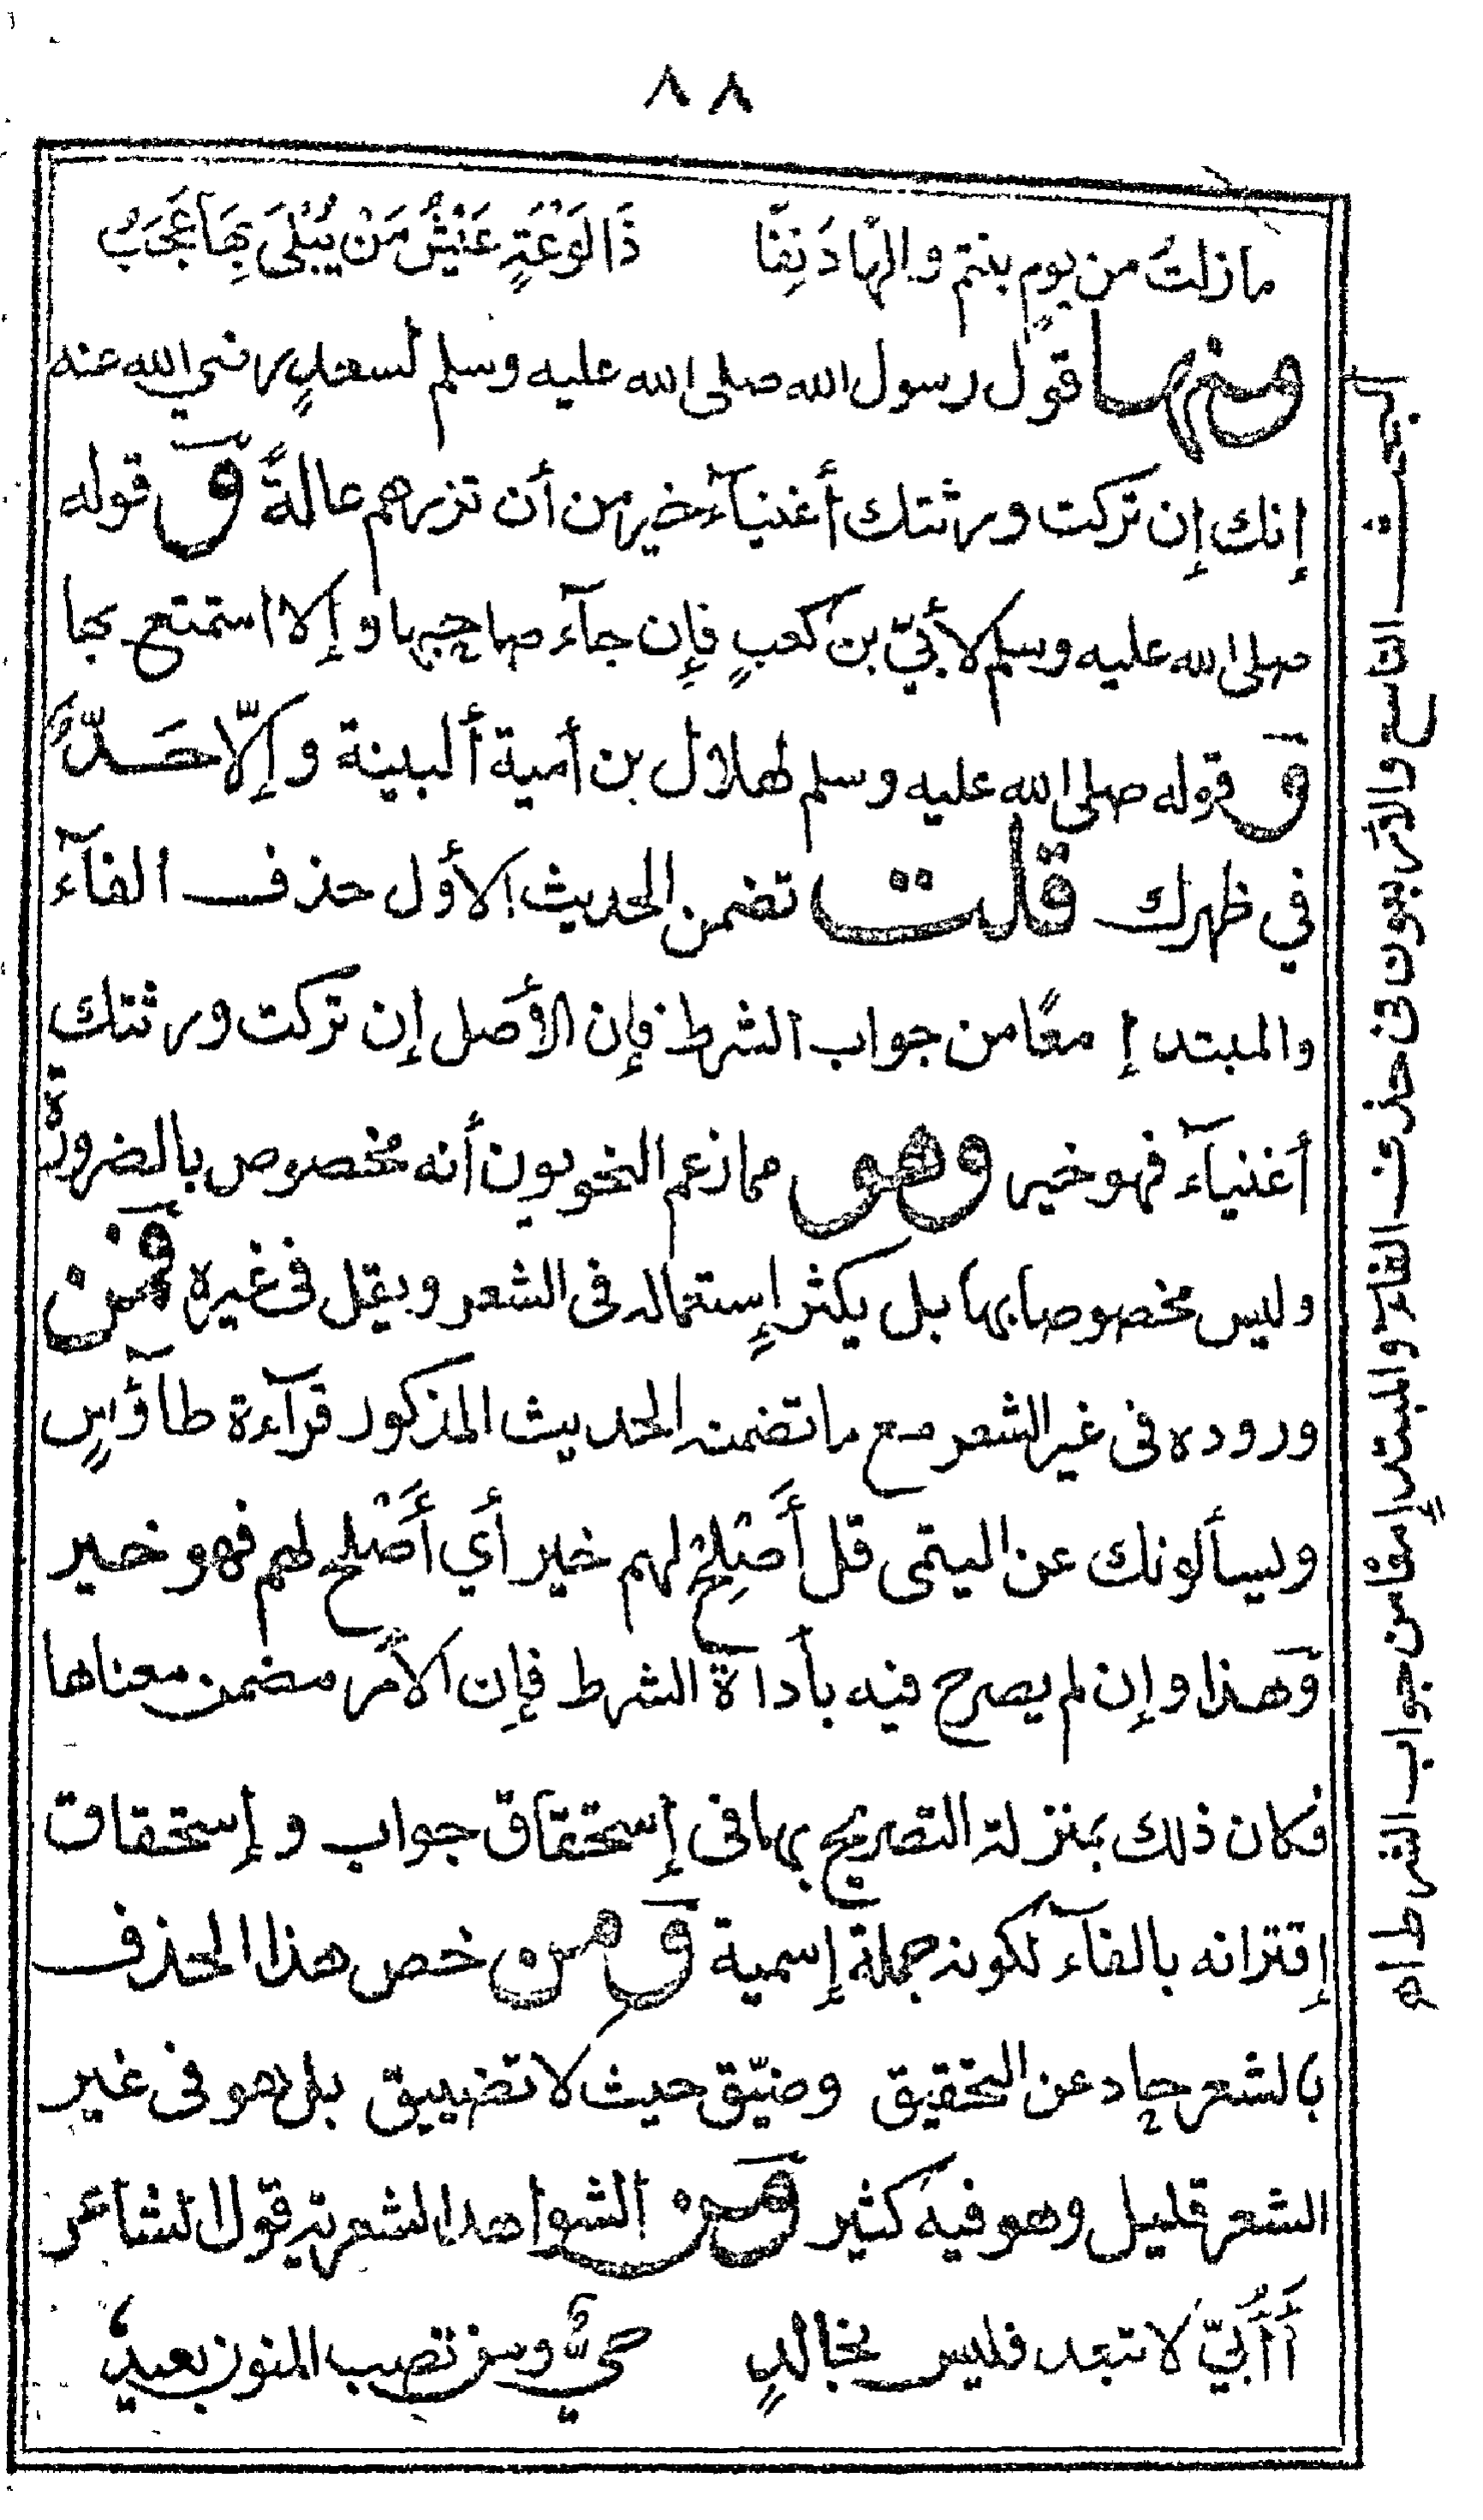 ٨٨
ما زلتُ من يومٍ بنتم والهًا دَنِفًا ذَا لَوْعَةٍ عَيْشُ مَنْ يُبْلَى بِهَا عَجَبُ
ومنها قول رسول الله صلى الله عليه وسلم لسعدٍ رضي الله عنه
إنك إن تركت ورثتك أغنيآء خير من أن تزرهم عالةً وَ قوله
صلى الله عليه وسلم لأبيّ بن كعبٍ فإن جآء صاحبها وإلا استمتع بها
وَ قوله صلى الله عليه وسلم لهلال بن أمية ألبينة وإلّا حَدٌّ
في ظهرك قلت تضمن الحديث الأول حذف الفآء
والمبتدإ معًا من جواب الشرط فإن الأصل إن تركت ورثتك
أغنيآء فهو خير وهو مما زعم النحويون أنه مخصوص بالضرورة
وليس مخصوصا بها بل يكثر إستعماله فى الشعر ويقل فى غيره فمن
وروده فى غير الشعر مع ما تضمنه الحديث المذكور قرآءة طآؤسٍ
ويسألونك عن اليتمى قل أَصْلِحْ لهم خير أي أَصْلح لهم فهو خير
وَهذا وإن لم يصرح فيه بأداة الشرط فإن الأمر مضمن معناها
فكان ذلك بمنزلة التصريح بها فى إستحقاق جواب وإستحقاق
إقترانه بالفآء لكونه جملة إسمية وَمن خص هذا الحذف
بالشعر حاد عن التحقيق وضيّق حيث لا تضييق بل هو فى غير
الشعر قليل وهو فيه كثير وَمن الشواهد الشعرية قول الشاعر
أَأُبَيّ لا تبعد فليس بخالدٍ حيٌّ ومن تصب المنون بعيدُ
الناسع والأربعون فى حذف الفآء والمبتدإ معًا من جواب الشرط